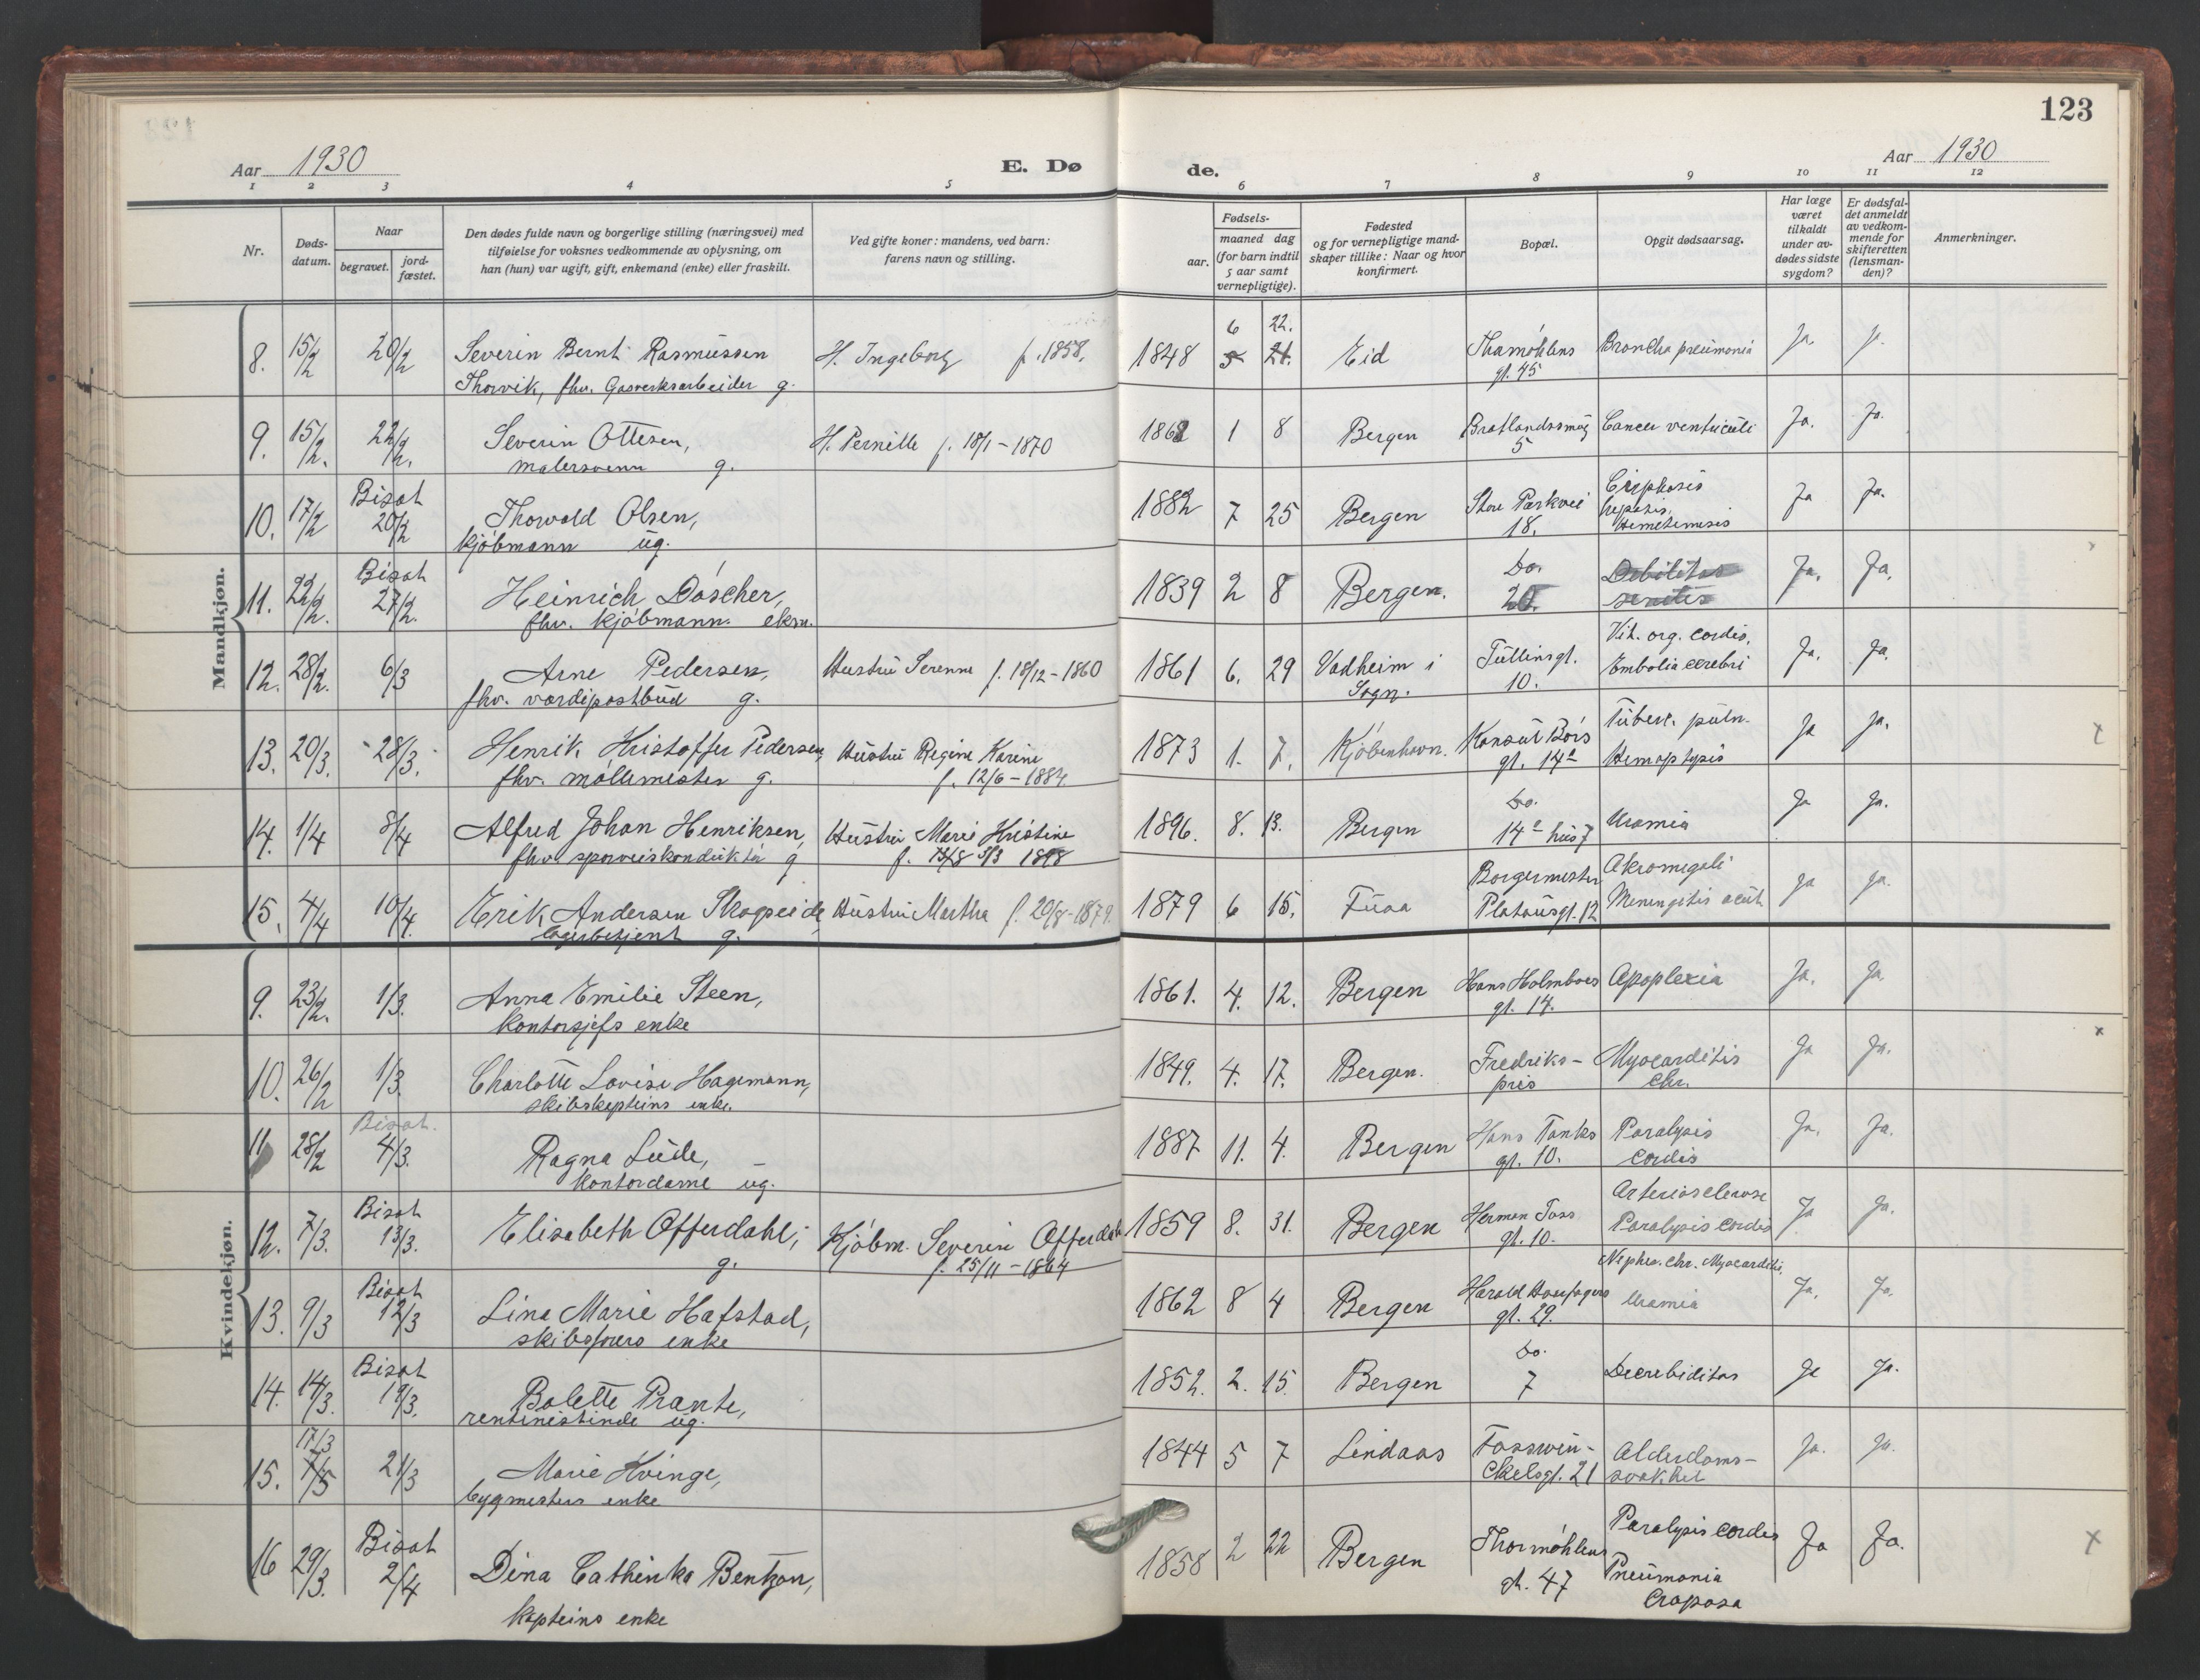 123
Aar 1930
E. Dø
de.
Aar 1930
1 2 3 4 5 6 7 8 9 10 11 12
Nr.
Døds-
datum.
Naar
begravet.
jord-
fæstet.
Den dødes fulde navn og borgerlige stilling (næringsvei) med
tilføielse for voksnes vedkommende av oplysning, om
han (hun) var ugift, gift, enkemand (enke) eller fraskilt.
Ved gifte koner: mandens, ved barn:
farens navn og stilling.
Fødsels-
aar.
maaned dag
(for barn indtil
5 aar samt
vernepligtige).
Fødested
og for vernepligtige mand-
skaper tillike: Naar og hvor
konfirmert.
Bopæl.
Opgit dødsaarsag.
Har læge
været
tilkaldt
under av-
dødes sidste
sygdom?
Er dødsfal-
det anmeldt
av vedkom-
mende for
skifteretten
(lensman-
den)?
Anmerkninger.
Mandkjøn.
6 22.
8. 15/2 20/2 Severin Bernt Rasmussen H. Ingeborg f. 1858. 1848 5 21. Eid Thamøhlens Broncho pneumonia Ja. Ja.
Thorvik, fhv. Gasverksarbeider g. gt. 45
9. 15/2. 22/2. Severin Ottesen, H. Pernille f. 18/1-1870 1862 1 8 Bergen Bratlandssmug Cancer ventriculi Ja. Ja.
malersvenn g. 5
Bisat Cirrhosis
10. 17/2 20/2 Thorvald Olsen, 1882 7 25 Bergen Store Parkvei hepatis. Ja Ja.
kjøbmann ug. 18. Hemetemesis
Bisat Do. Debilitas
11. 22/2. 27/2. Heinrich Döscher, 1839 2 8 Bergen. 20. senilis Ja. Ja.
fhv. kjøbmann. ekm.
Vit. org. cordis.
12. 28/2. 6/3 Arne Pedersen, Hustru Serenne f. 18/12-1860 1861 6. 29 Vadheim i Tüllinsgt. Embolia cerebri Ja. Ja.
fhv. verdipostbud g. Sogn. 10.
Tuberc. pulm.
13. 20/3. 28/3. Henrik Kristoffer Pedersen, Hustru Regine Karine 1873 1. 7. Kjøbenhavn. Konsul Börs Hemoptysis Ja Ja.
fhv. møllemester g. f. 12/6-1884. gt. 14a
Do.
14. 1/4 8/4 Alfred Johan Henriksen, Hustru Marie Kristine 1896. 8. 13. Bergen 14a hus 7 Uræmia Ja Ja.
fhv. sporveiskonduktør g f. 13/8 5/3 1898
Borgermester Akromegali
15. 4/4 10/4. Erik Andersen Skogseide, Hustru Martha f. 20/8-1879. 1879 6 15. Fusa Platousgt. 12 Meningitis acut. Ja Ja.
lagerbetjent g.
Kvindekjøn.
9. 23/2. 1/3. Anna Emilie Steen, 1861. 4. 12. Bergen Hans Holmboes Apoplexia Ja. Ja.
kontorsjefs enke gt. 14.
10. 26/2 1/3. Charlotte Lovise Hagemann, 1849. 4. 17. Bergen. Fredriks- Myocarditis Ja Ja.
skibskapteins enke. pris chr.
Bisat.
11 28/2 4/3. Ragna Lude, 1887 11. 4. Bergen Hans Tanks Paralysis Ja. Ja.
kontordame ug. gt. 10. cordis
Bisat Arteriosclerose
12. 7/3. 13/3. Elisabeth Offerdahl, Kjøbm. Severin Offerdahl 1859 8. 31. Bergen Herman Foss Paralysis cordis Ja Ja.
g. f. 25/11-1864 gt. 10.
Bisat Nephr. chr. Myocarditis,
13. 9/3 12/3 Lina Marie Hafstad, 1862 8 4 Bergen Harald Haarfagers Uræmia Ja. Ja.
skibsførers enke gt. 29.
Bisat Do.
14. 14/3. 19/3. Bolette Prante, 1852. 2. 15. Bergen 7 Decrebiditas Ja Ja.
rentenistinde ug.
17/3
15. 7/5 21/3 Marie Hvinge, 1844 5 7 Lindaas Fosswin- Alderdoms- Ja. Ja.
bygmesters enke ckelsgt. 21 svakhet
Bisat Paralysis cordis
16 29/3. 2/4 Dina Cathinka Bentzon, 1858 2 22 Bergen Thormøhlens Pneumonia Ja Ja.
kapteins enke gt. 47 Croposa